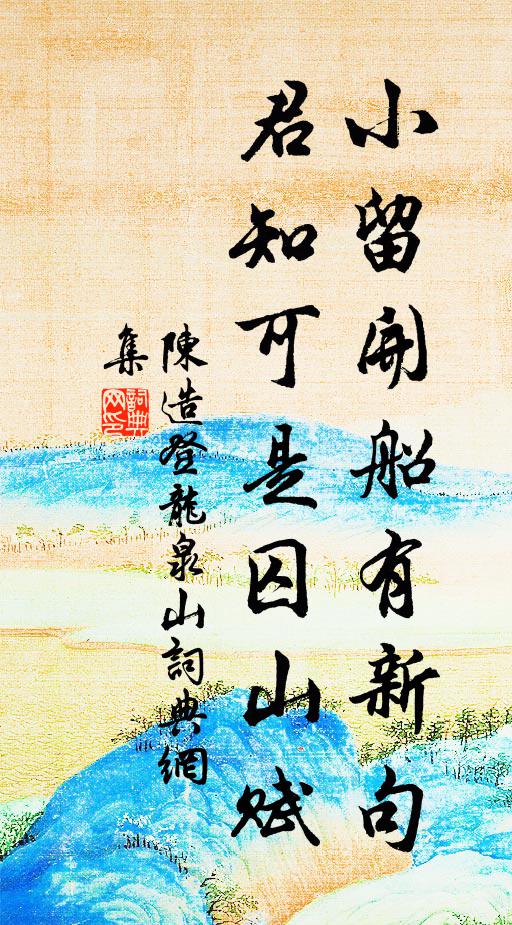 小留開船有新句
君知可是囚山賦
陳造登龍泉山詞典網
集
詞典
网印